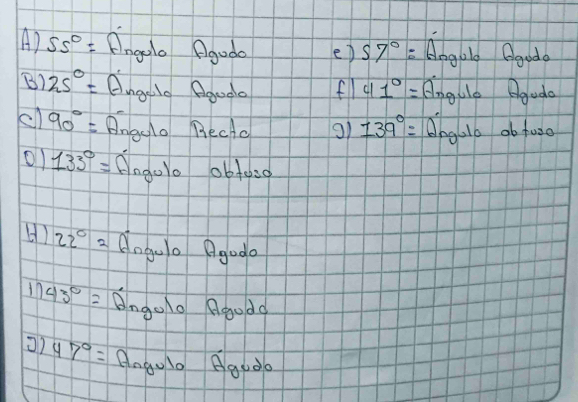 A) 55° = Ángulo Agudo
B) 25° = Ángulo Agudo
C) 90° = Ángulo Recto
D) 133° = Ángulo obtuso
e) 57° = Ángulo Agudo
f) 41° = Ángulo Agudo
g) 139° = Ángulo obtuso
H) 22° = Ángulo Agudo
I) 43° = Ángulo Agudo
J) 47° = Angulo Águdo